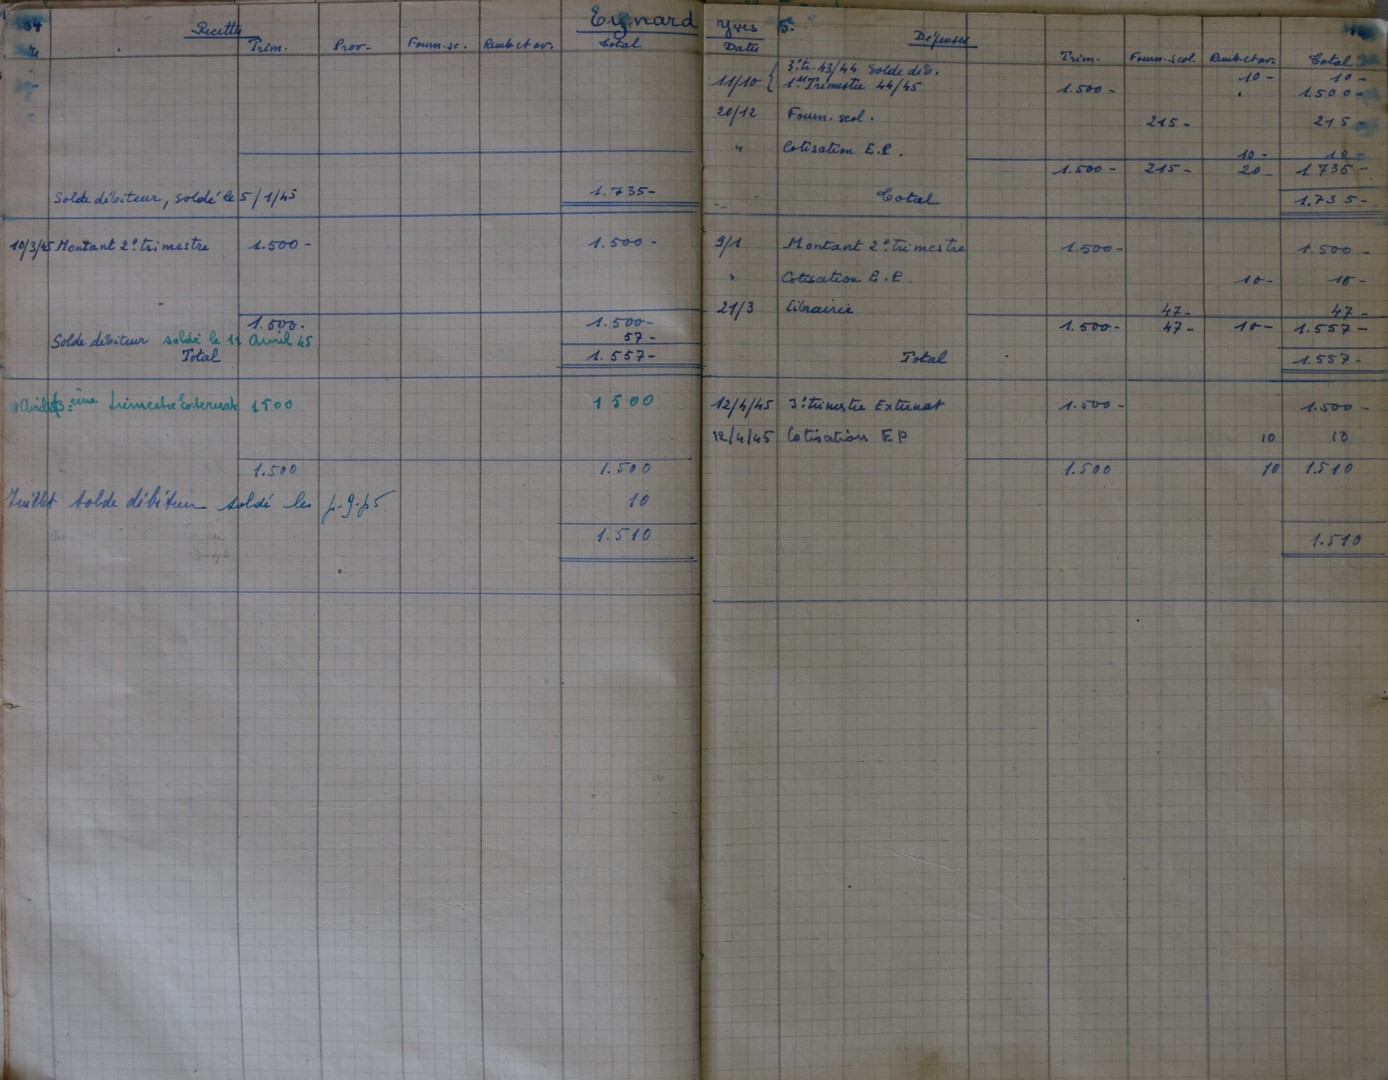 Recettes Eynard
Trim. Prov. Fourn. sc. Remb. et av. Total
Solde débiteur, soldé le 5/1/45 1.735-
10/3/45 Montant 2e trimestre 1.500- 1.500-
1.500- 1.500-
Solde débiteur soldé le 11 Avril 45 57-
Total 1.557-
3ème trimestre Externat 1500 1500
1.500 1.500
Juillet solde débiteur soldé le 10
1.510
Yves 5.
Dates Dépenses Trim. Fourn. scol. Remb. et av. Total
3e tr. 43/44 Solde déb. 10- 10-
11/10 { 1er Trimestre 44/45 1.500- 1500-
20/12 Fourn. scol. 215- 215-
" Cotisation E.P. 10- 10-
1.500- 215- 20- 1.735-
Total 1.735-
9/1 Montant 2e trimestre 1.500- 1.500-
" Cotisation E.P. 10- 10-
21/3 Librairie 47- 47-
1.500- 47- 10- 1.557-
Total 1.557-
12/4/45 3e trimestre Externat 1.500- 1.500-
12/4/45 Cotisation EP 10 10
1.500 10 1510
1.510